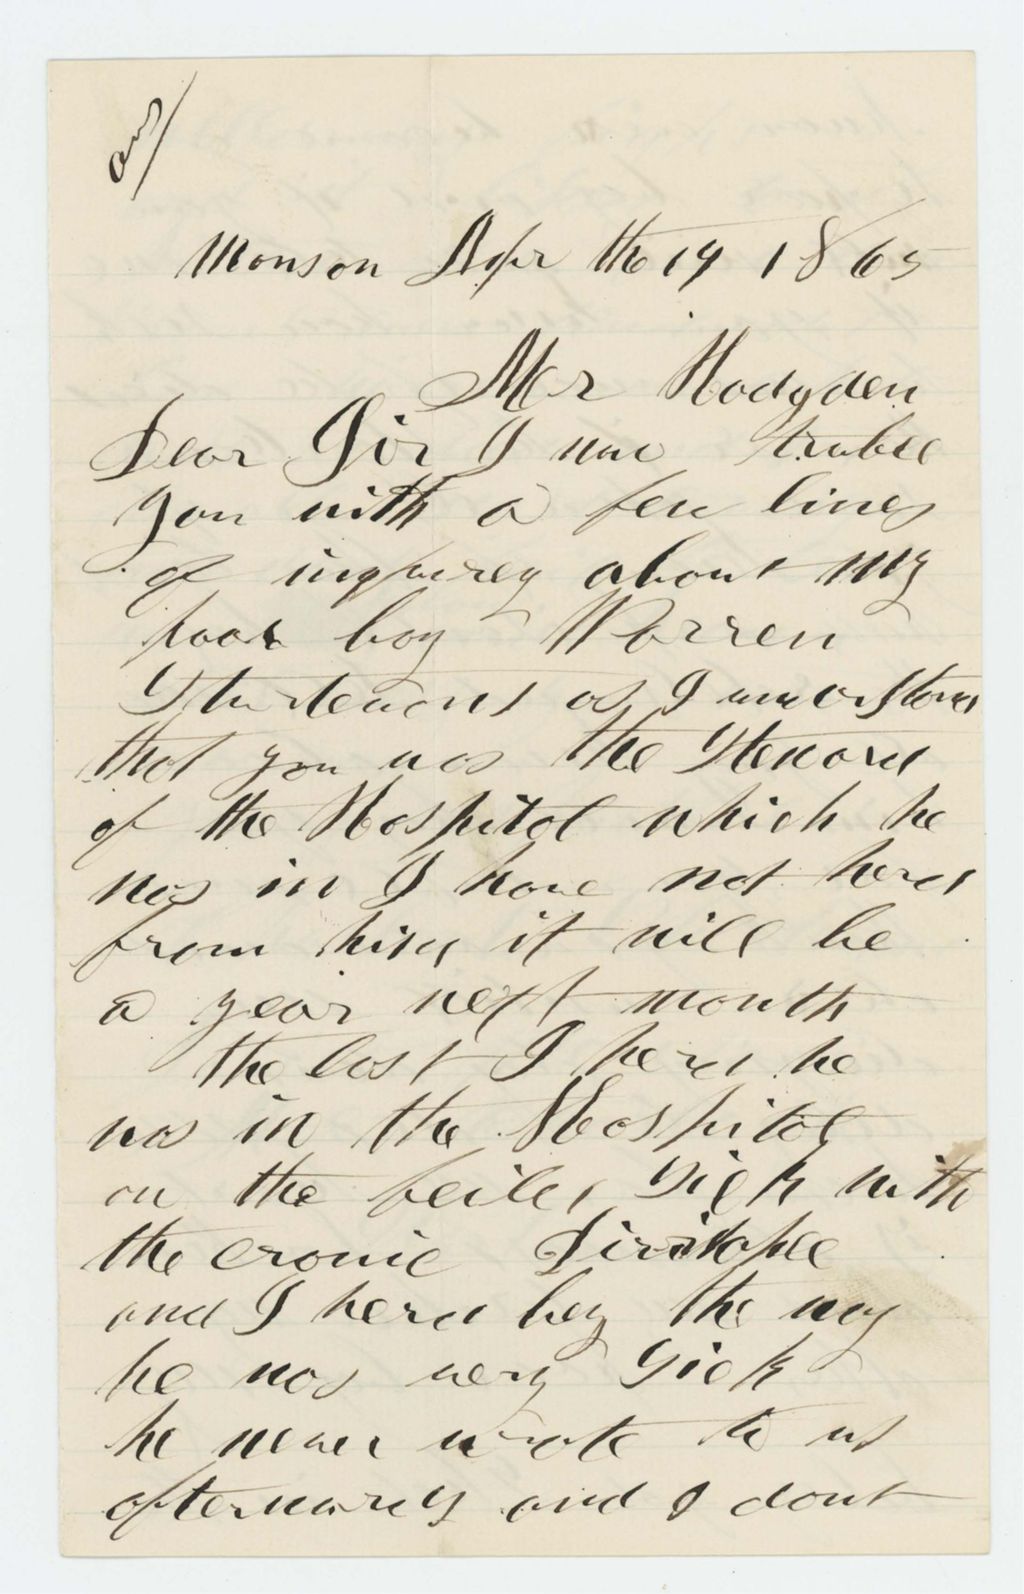 ans/
Monson Apr the 19 1865
Mr Hodgden
Dear Sir I now truble
you with a few lines
of inquirey about my
poor boy Warren
Sturdevent as I understand
that you was the Steward
of the Hospital which he
was in I have not herd
from him it will be
a year next month
the last I herd he
was in the Hospital
on the feild, Sick with
the cronic
and I herd bey the way
he was very Sick
he never wrote to us
afterwards and I dont